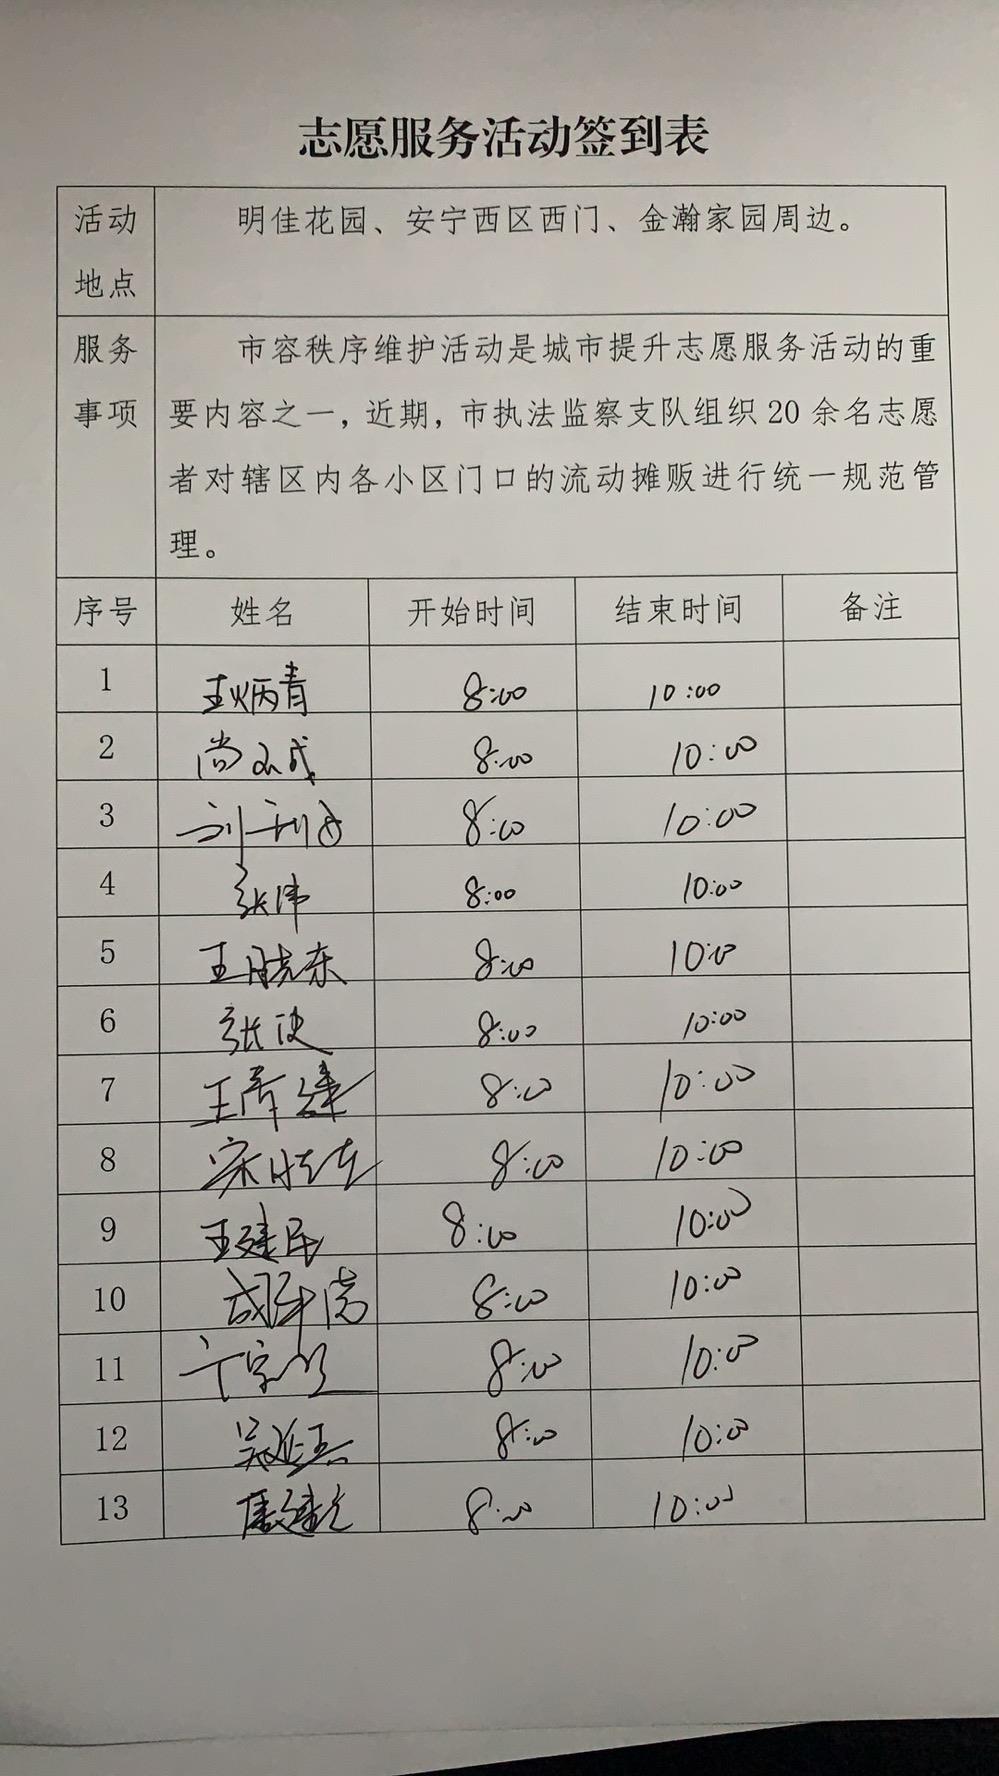 志愿服务活动签到表
活动地点
明佳花园、安宁西区西门、金瀚家园周边。
服务事项
市容秩序维护活动是城市提升志愿服务活动的重
要内容之一，近期，市执法监察支队组织20余名志愿
者对辖区内各小区门口的流动摊贩进行统一规范管
理。
序号 姓名 开始时间 结束时间 备注
1 王炳青 8:00 10:00
2 尚 8:00 10:00
3 刘利 8:00 10:00
4 张伟 8:00 10:00
5 王晓东 8:00 10:00
6 张 8:00 10:00
7 王 8:00 10:00
8 宋 8:00 10:00
9 王建民 8:00 10:00
10 8:00 10:00
11 8:00 10:00
12 吴 8:00 10:00
13 8:00 10:00